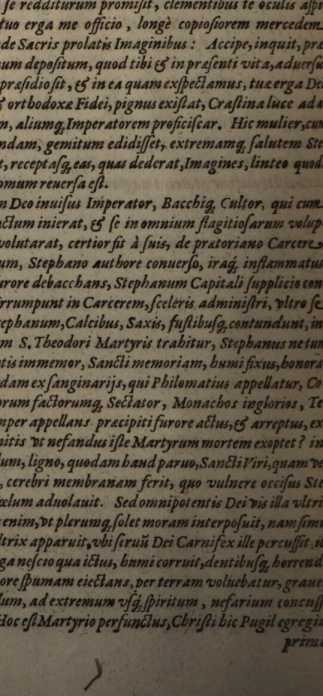 se redditurum promisit, clementibus te oculis aspi
tuo erga me officio, longè copiosiorem mercedem
de Sacris prolatis Imaginibus: Accipe, inquit, præ
um depositum, quod tibi & in præsenti vita, aduersu
præsidio sit, & in ea quam exspectamus, tuæ erga De
& orthodoxæ Fidei, pignus existat, Crastina luce ad a
m, aliumq, Imperatorem proficiscar. Hic mulier, cum
ndam, gemitum edidisset, extremamq, salutem Ste
t, receptasq, eas, quas dederat, Imagines, linteo quod
omum reuersa est.
n Deo inuisus Imperator, Bacchiq, Cultor, qui cum
actum inierat, & se in omnium flagitiosarum volup
volutarat, certior fit à suis, de prætoriano Carcere
um, Stephano authore conuerso, iraq, inflammatus
urore debacchans, Stephanum Capitali supplicio con
irrumpunt in Carcerem, sceleris administri, vltro se
tephanum, Calcibus, Saxis, fustibusq, contundunt, in
m S. Theodori Martyris trahitur, Stephanus ne tum
tis immemor, Sancti memoriam, humi fixus, honora
dam ex sanguinarijs, qui Philomatius appellatur, Co
orum factorumq, Sectator, Monachos inglorios, Te
mper appellans præcipiti furore actus, & arreptus, ex
nitis vt nefandus iste Martyrum mortem exoptet? in
lum, ligno, quodam haud paruo, Sancti Viri, quam ve
, cerebri membranam ferit, quo vulnere occisus Ste
ælum aduolauit. Sed omnipotentis Dei vis illa vltri
enim, vt plerumq, solet moram interposuit, nam simu
ltrix apparuit, vbi seruū Dei Carnifex ille percussit
ga nescio qua ictus, humi corruit, dentibusq, horrend
ore spumam eiectans, per terram voluebatur, graue
lum, ad extremum vsq, spiritum, nefarium concuss
Hoc est Martyrio perfunctus, Christi hic Pugil egregi
prima